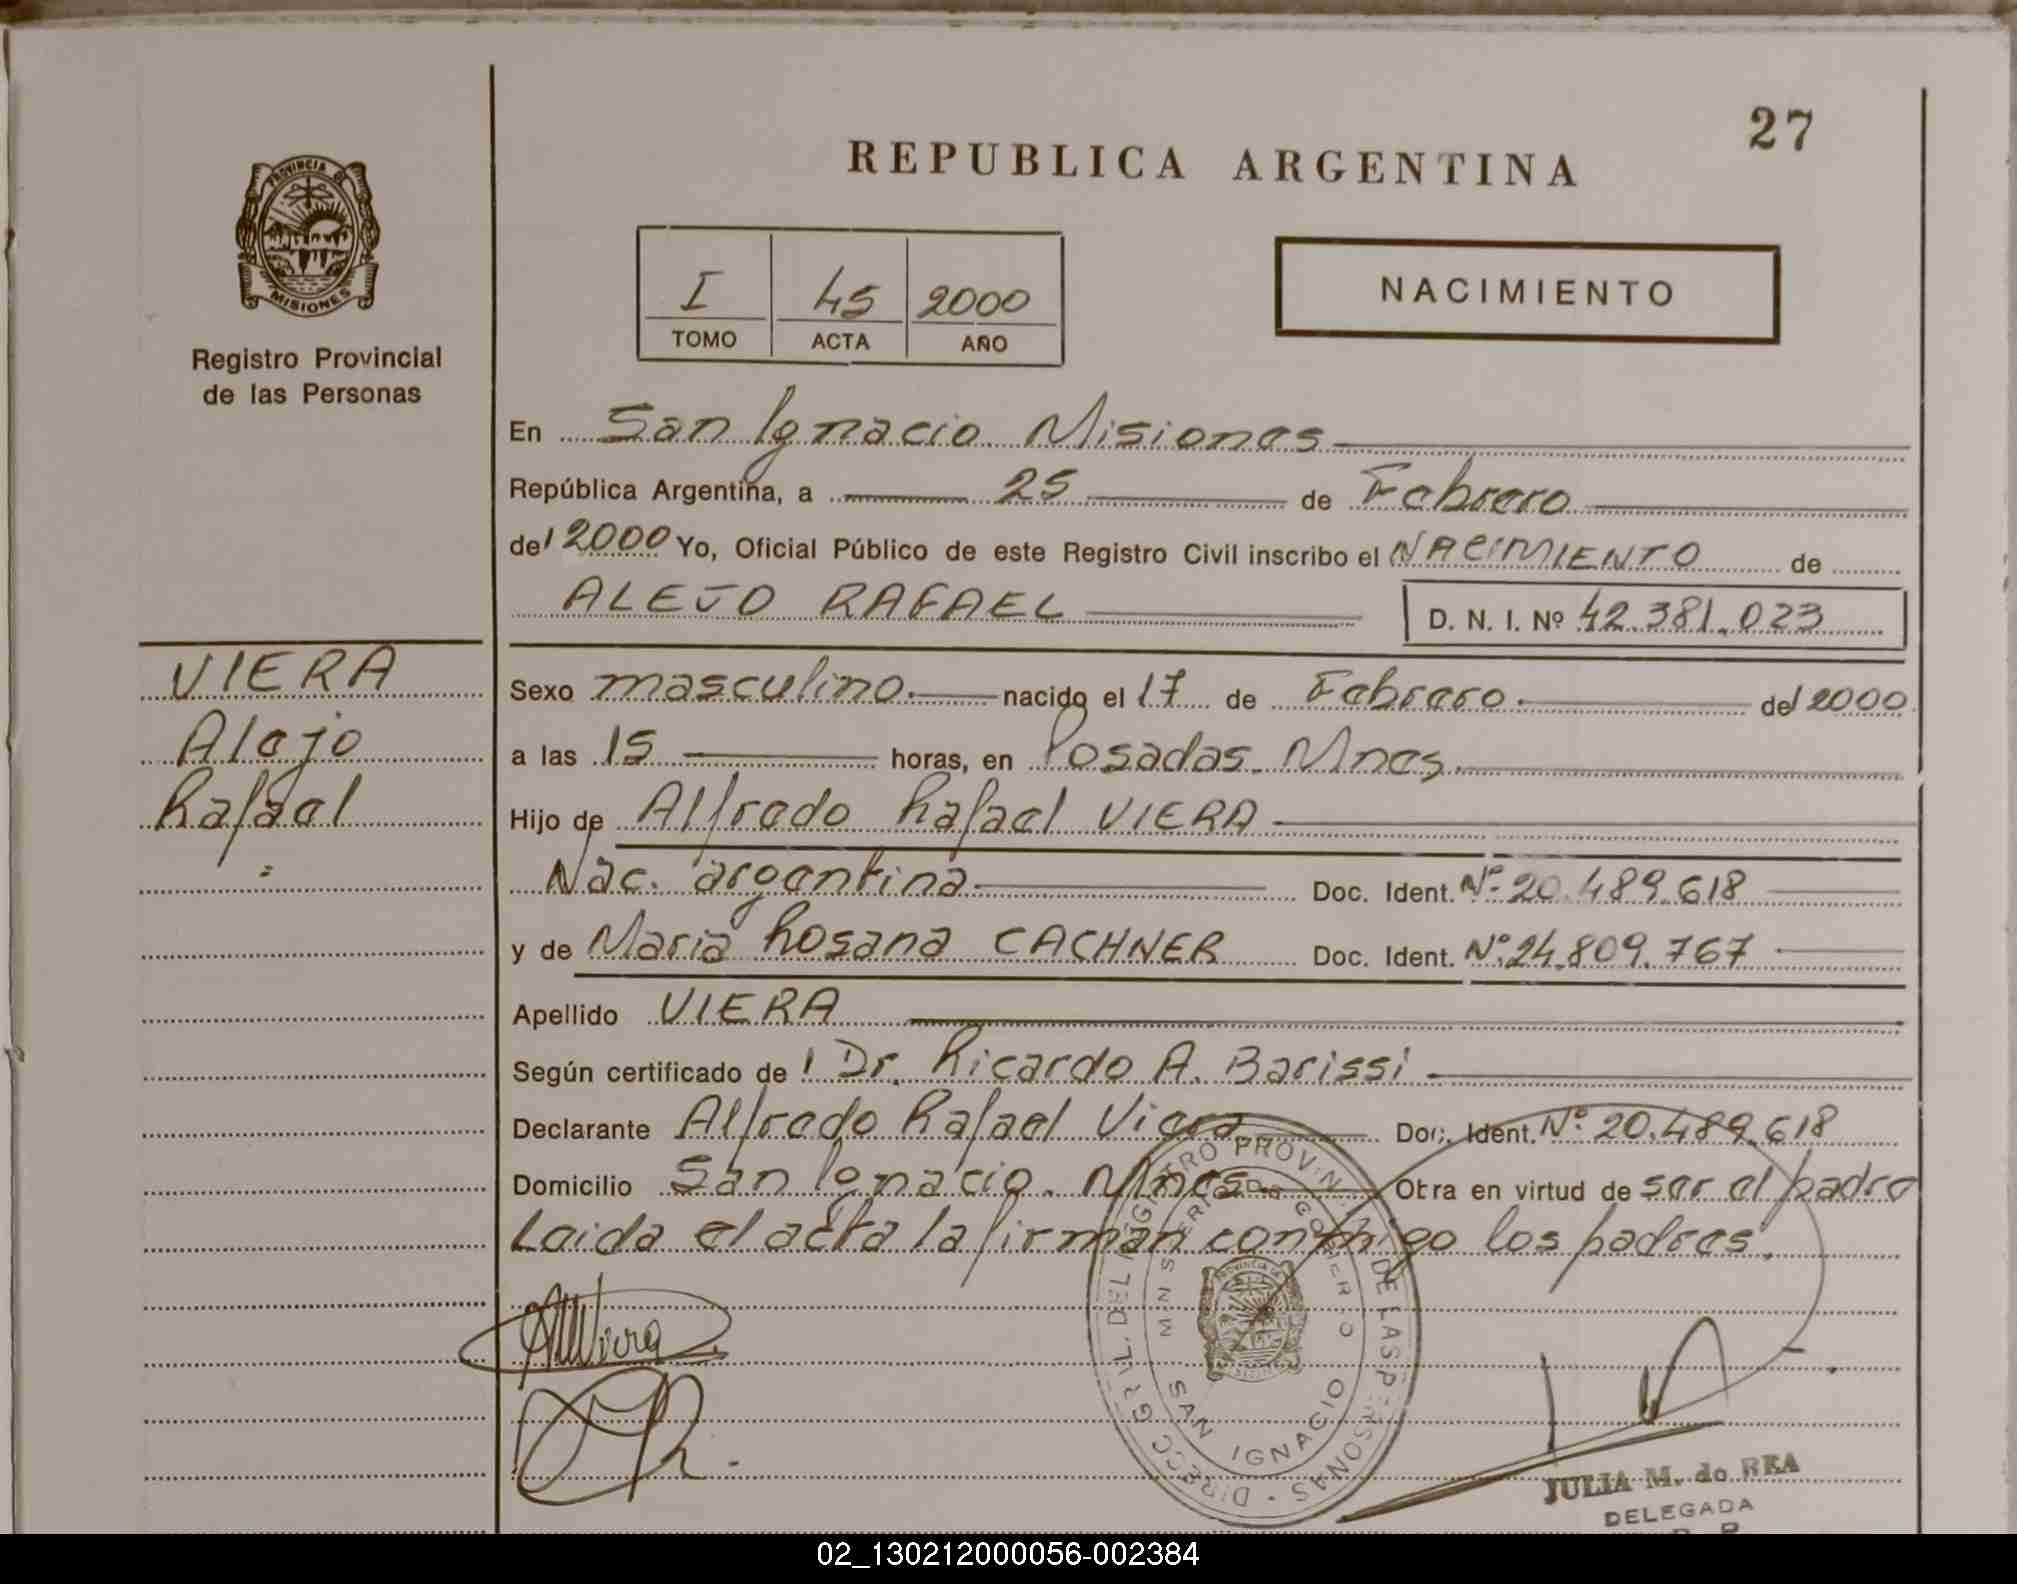 27
REPUBLICA ARGENTINA
PROVINCIA DE
MISIONES
Registro Provincial
de las Personas
I 45 2000
TOMO ACTA AÑO
NACIMIENTO
En San Ignacio Misiones
República Argentina, a 25 de Febrero
del 2000 Yo, Oficial Público de este Registro Civil inscribo el NACIMIENTO de
ALEJO RAFAEL D. N. I. Nº 42.381.023
VIERA
Alejo
Rafael
Sexo masculino. nacido el 17 de Febrero. del 2000
a las 15 horas, en Posadas. Mnes.
Hijo de Alfredo Rafael VIERA
Nac. argentina Doc. Ident. Nº 20.489.618
y de Maria Rosana CACHNER Doc. Ident. Nº 24.809.767
Apellido VIERA
Según certificado del Dr. Ricardo A. Barissi
Declarante Alfredo Rafael Viera Doc. Ident. Nº 20.489.618
Domicilio San Ignacio. Mnes. Otra en virtud de ser el padre
Leida el acta la firman conmigo los padres.
DIRECC GRAL. DEL REGISTRO PROVIN. DE LAS PERSONAS
MINISTERIO DE GOBIERNO
SAN IGNACIO
JULIA M. de REA
DELEGADA
02_130212000056-002384